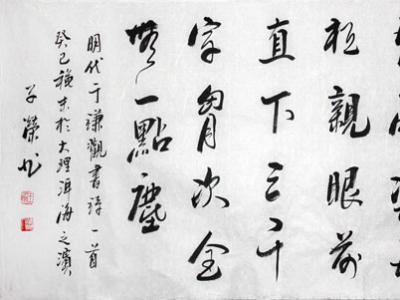 相親眼前
直下三千
字胷次全
無一點塵
明代于謙觀書詩一首
癸巳穐末於大理洱海之濱
子榮书